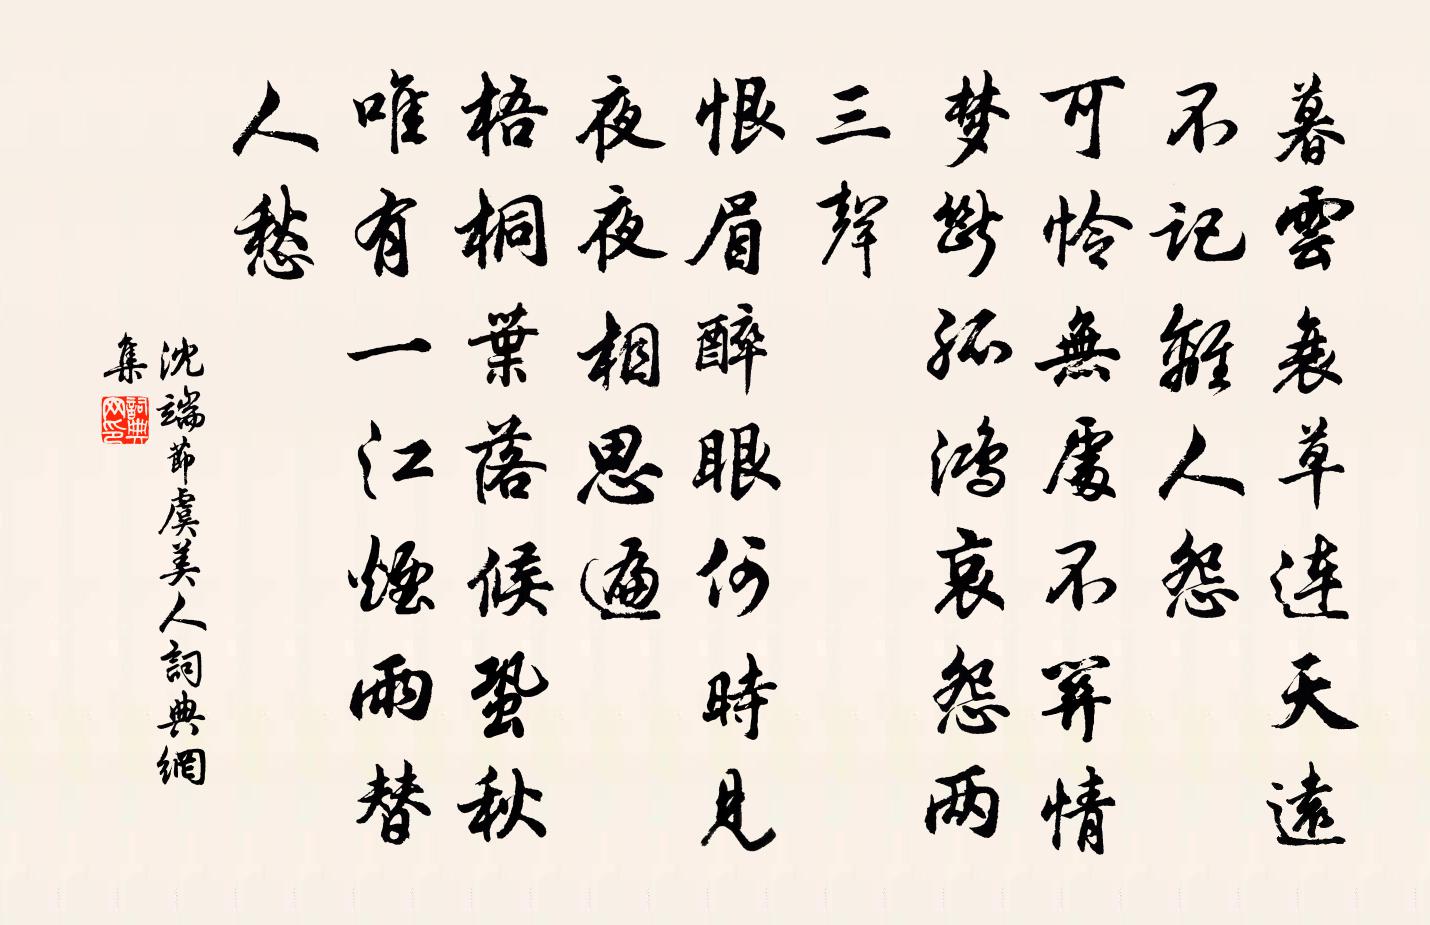 暮雲衰草連天遠
不記離人怨
可憐無處不關情
梦斷孤鴻哀怨两
三聲
恨眉醉眼何時見
夜夜相思遍
梧桐葉落候蛩秋
唯有一江煙雨替
人愁
沈端節虞美人詞典網
集
詞典
网印